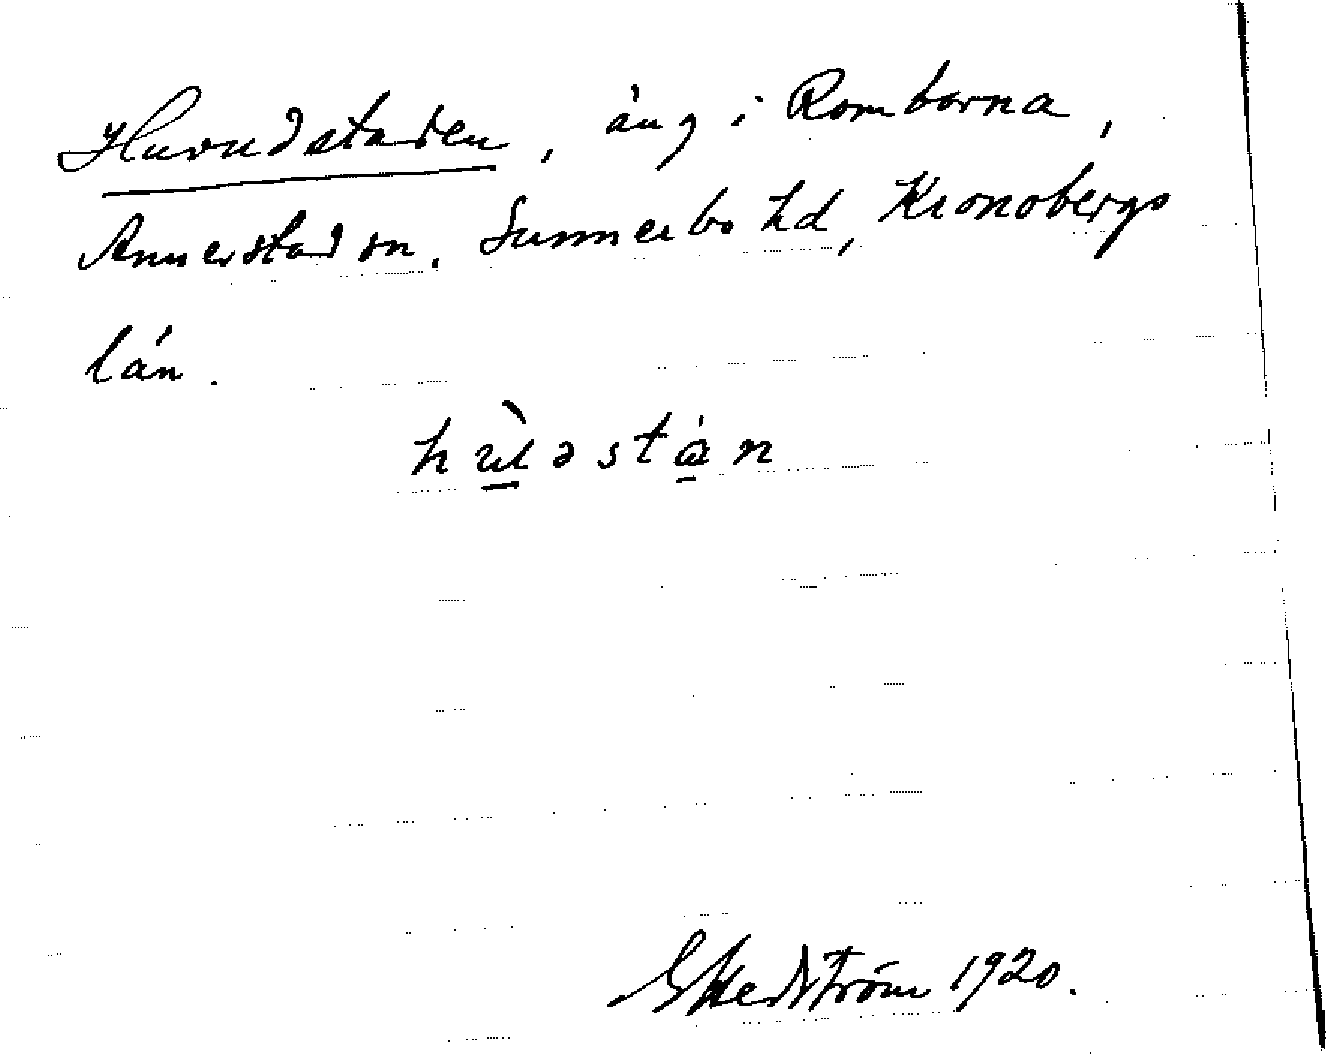 Huvudstaden, äng i Romborna,
Annerstad sn. Sunnerbo hd, Kronobergs
län.
hùləstàn
G Hedström 1920.